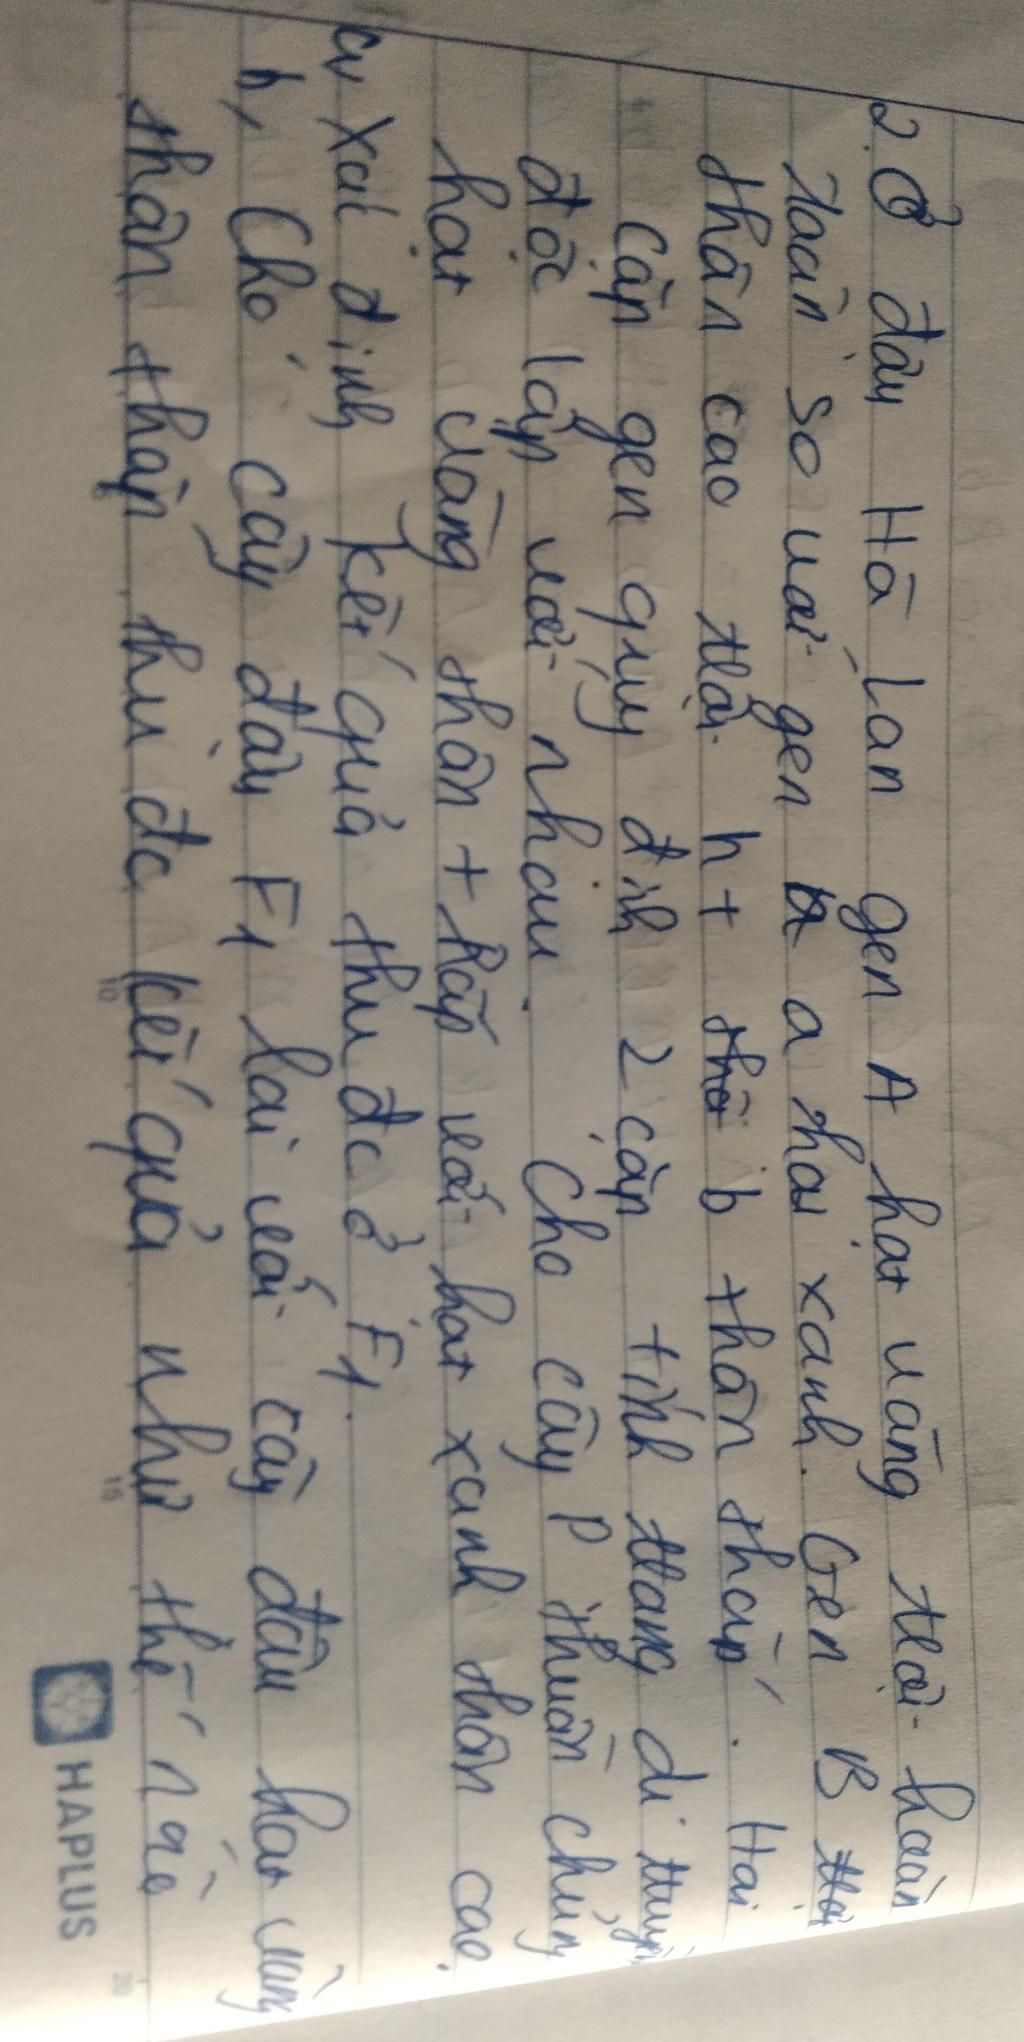 2. Ở đậu Hà Lan gen A hạt vàng trội hoàn
toàn so với gen a hạt xanh. Gen B trội
thân cao trội ht thời b thân thấp. Hai
cặp gen quy định 2 cặp tính trạng di truyền
độc lập với nhau. Cho cây P thuần chủng
hạt vàng thân thấp với hạt xanh thân cao.
a, Xác định kết quả thu đc ở F1.
b, Cho cây đậu F1 lai với cây đậu hạt vàng
thân thấp thu đc kết quả như thế nào
5 10 15 20
HAPLUS